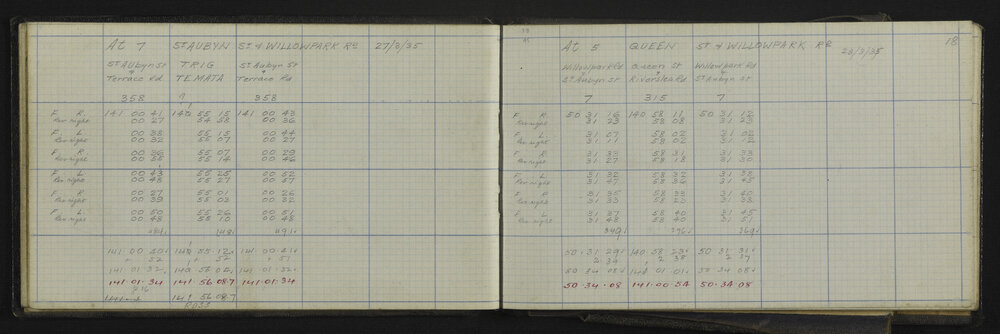 At 7 St AUBYN St & WILLOWPARK Rd 27/3/35
St Aubyn St TRIG St Aubyn St
& Terrace Rd TE MATA & Terrace Rd
358 9 358
F. R. 141 00 41 140 55 15 141 00 43
Rev right 00 27 54 58 00 36
F. L. 00 38 55 15 00 44
Rev right 00 32 55 07 00 27
F. R. 00 36 55 07 00 29
Rev right 00 55 55 14 00 46
F. L. 00 43 55 25 00 52
Rev right 00 48 55 27 00 57
F. R. 00 27 55 01 00 26
Rev right 00 39 55 03 00 32
F. L. 00 50 55 26 00 51
Rev right 00 48 55 10 00 48
141 00 40 140 55 12 141 00 41
+ 52 + 52 + 51
141 01 32 140 56 04 141 01 32
141 01 34 141 56 08.7 141 01 34
141 56 08.7
ROSS
18
At 5 QUEEN St & WILLOWPARK Rd 28/3/35
Willowpark Rd Queen St Willowpark Rd
& St Aubyn St & Riverslea Rd & St Aubyn St
7 315 7
F. R. 50 31 16 140 58 11 50 31 12
Rev right 31 23 58 08 31 23
F. L. 31 07 58 02 31 02
Rev right 31 11 58 02 31 12
F. R. 31 33 58 31 31 33
Rev right 31 27 58 18 31 30
F. L. 31 32 58 32 31 38
Rev right 31 47 58 36 31 45
F. R. 31 35 58 33 31 40
Rev right 31 33 58 23 31 38
F. L. 31 37 58 40 31 45
Rev right 31 48 58 40 31 51
349 296 369
50 31 29 140 58 23 50 31 31
2 39 2 38 2 37
50 34 08 141 01 01 50 34 08
50 34 08 141 00 54 50 34 08